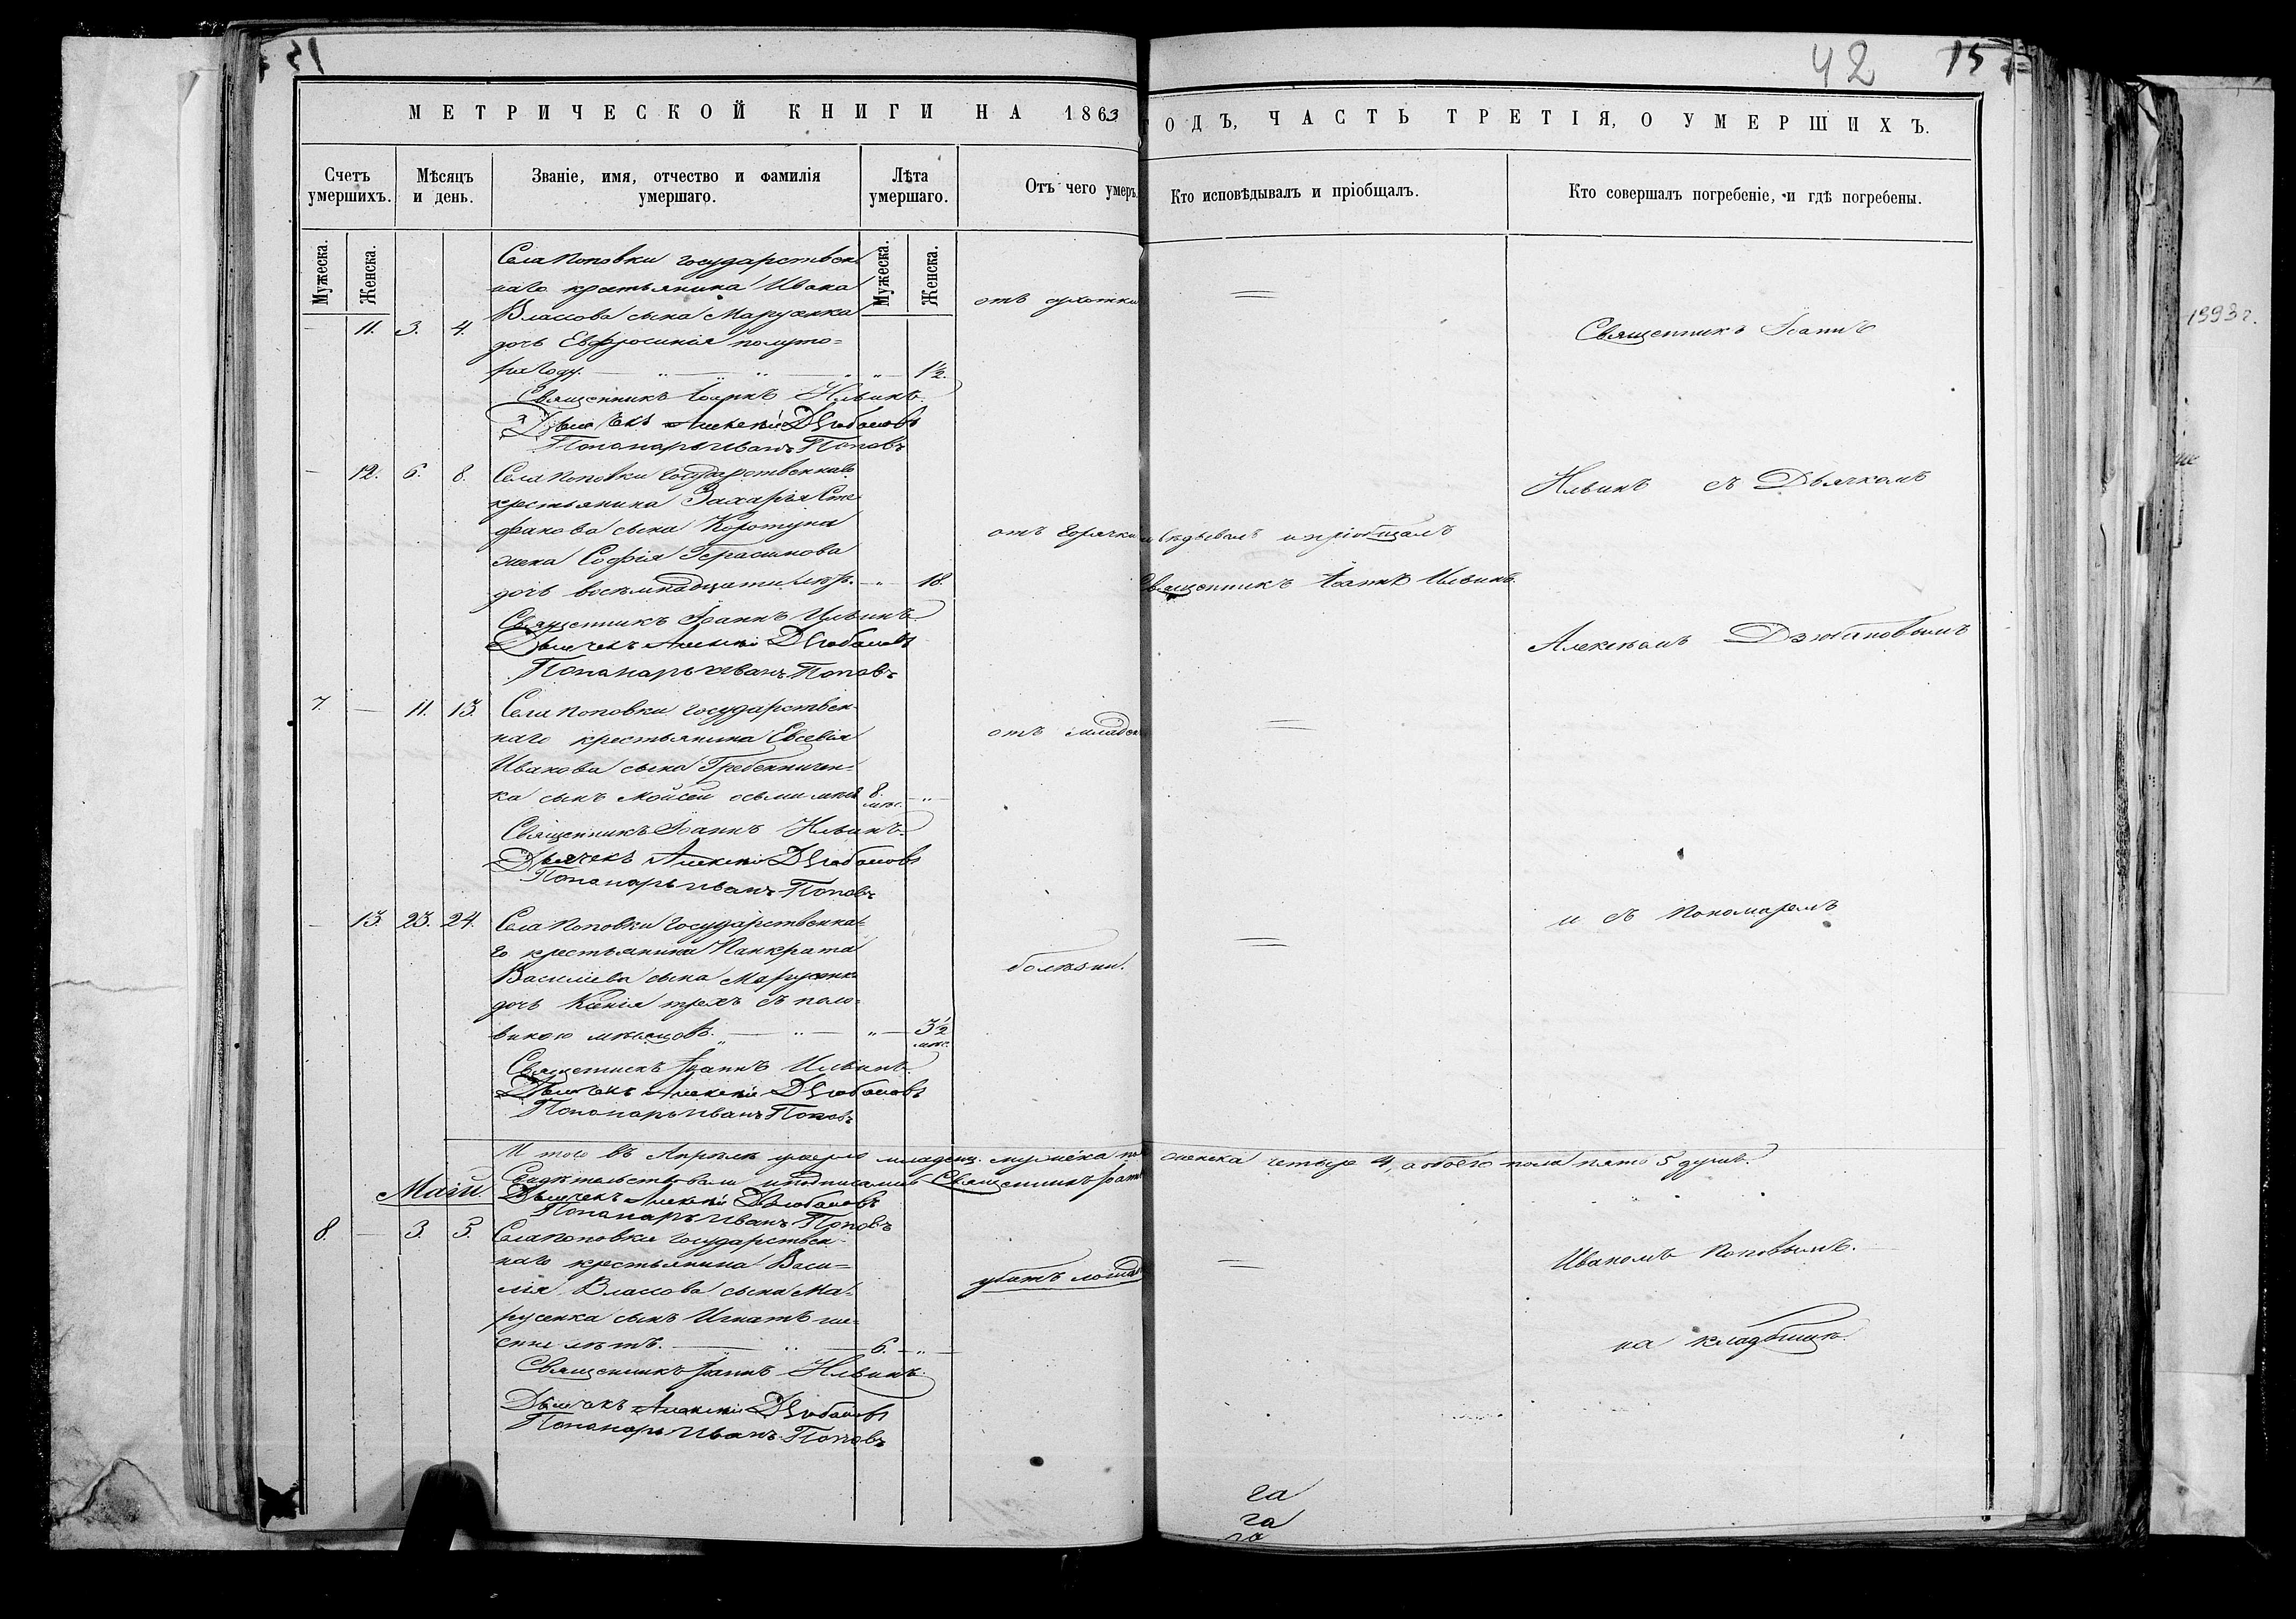 42 15
МЕТРИЧЕСКОЙ КНИГИ НА 1863 ГОДЪ, ЧАСТЬ ТРЕТІЯ, О УМЕРШИХЪ.
Счетъ умершихъ.
Мѣсяцъ и день.
Званіе, имя, отчество и фамилія умершаго.
Лѣта умершаго.
Отъ чего умеръ.
Кто исповѣдывалъ и пріобщалъ.
Кто совершалъ погребеніе, и гдѣ погребены.
Мужеска. Женска. Мужеска. Женска.
Села Поповки государствен
наго крестьянина Ивана
Власова сына Марусенка
— 11. 3. 4. дочь Евфросинія полуто=
ра году. — „ — 1½.
отъ сухотки
=
Священникъ Іоаннъ Ильинъ.
Дьячекъ Алексѣй Дзюбановъ
Пономарь Иванъ Поповъ
— 12. 6. 8. Села Поповки государственнаго
крестьянина Захарія Сте
фанова сына Коротуна
жена Софія Герасимова
дочь восемнадцати лѣтъ. — „ — 18.
отъ горячки
исповѣдывалъ и пріобщалъ
Священникъ Іоаннъ Ильинъ.
Священникъ Іоаннъ Ильинъ.
Дьячекъ Алексѣй Дзюбановъ
Пономарь Иванъ Поповъ
7. — 11. 13. Села Поповки государствен
наго крестьянина Евсевія
Иванова сына Гребенничен=
ка сынъ Мойсей осьми мѣс. 8. мѣс. — „ —
отъ младен
=
Священникъ Іоаннъ Ильинъ.
Дьячекъ Алексѣй Дзюбановъ
Пономарь Иванъ Поповъ
— 13. 23. 24. Села Поповки государственна=
го крестьянина Панкрата
Василіева сына Марусенка
дочь Ксенія трехъ съ поло=
виною мѣсяцовъ. — „ — 3½ мѣс.
болѣзни.
=
Священникъ Іоаннъ Ильинъ.
Дьячекъ Алексѣй Дзюбановъ
Пономарь Иванъ Поповъ
И того въ Апрѣлѣ умерло младенц. мужеска женска четыре 4, а обоего пола пять 5 душъ.
Свидѣтельствовали и подписались Священникъ Іоаннъ
Май. Дьячекъ Алексѣй Дзюбановъ
Пономарь Иванъ Поповъ
8. — 3. 5. Села Поповки государствен
наго крестьянина Васи=
лія Власова сына Ма=
русенка сынъ Игнатъ ше=
сти лѣтъ. — „ — 6. — „ —
убитъ лошадью
=
Священникъ Іоаннъ Ильинъ.
Дьячекъ Алексѣй Дзюбановъ
Пономарь Иванъ Поповъ
Священникъ Іоаннъ
Ильинъ съ Дьячкомъ
Алексѣемъ Дзюбановымъ
и съ Пономаремъ
Иваномъ Поповымъ.
на кладбищѣ.
га
га
1993 г.